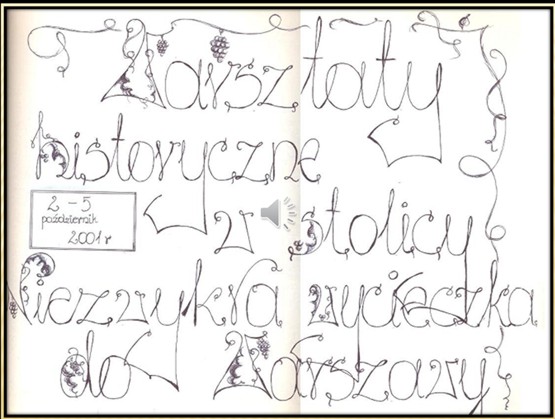 Warsztaty
historyczne
2 - 5
październik
2001 r
w stolicy
Niezwykła wycieczka
do Warszawy